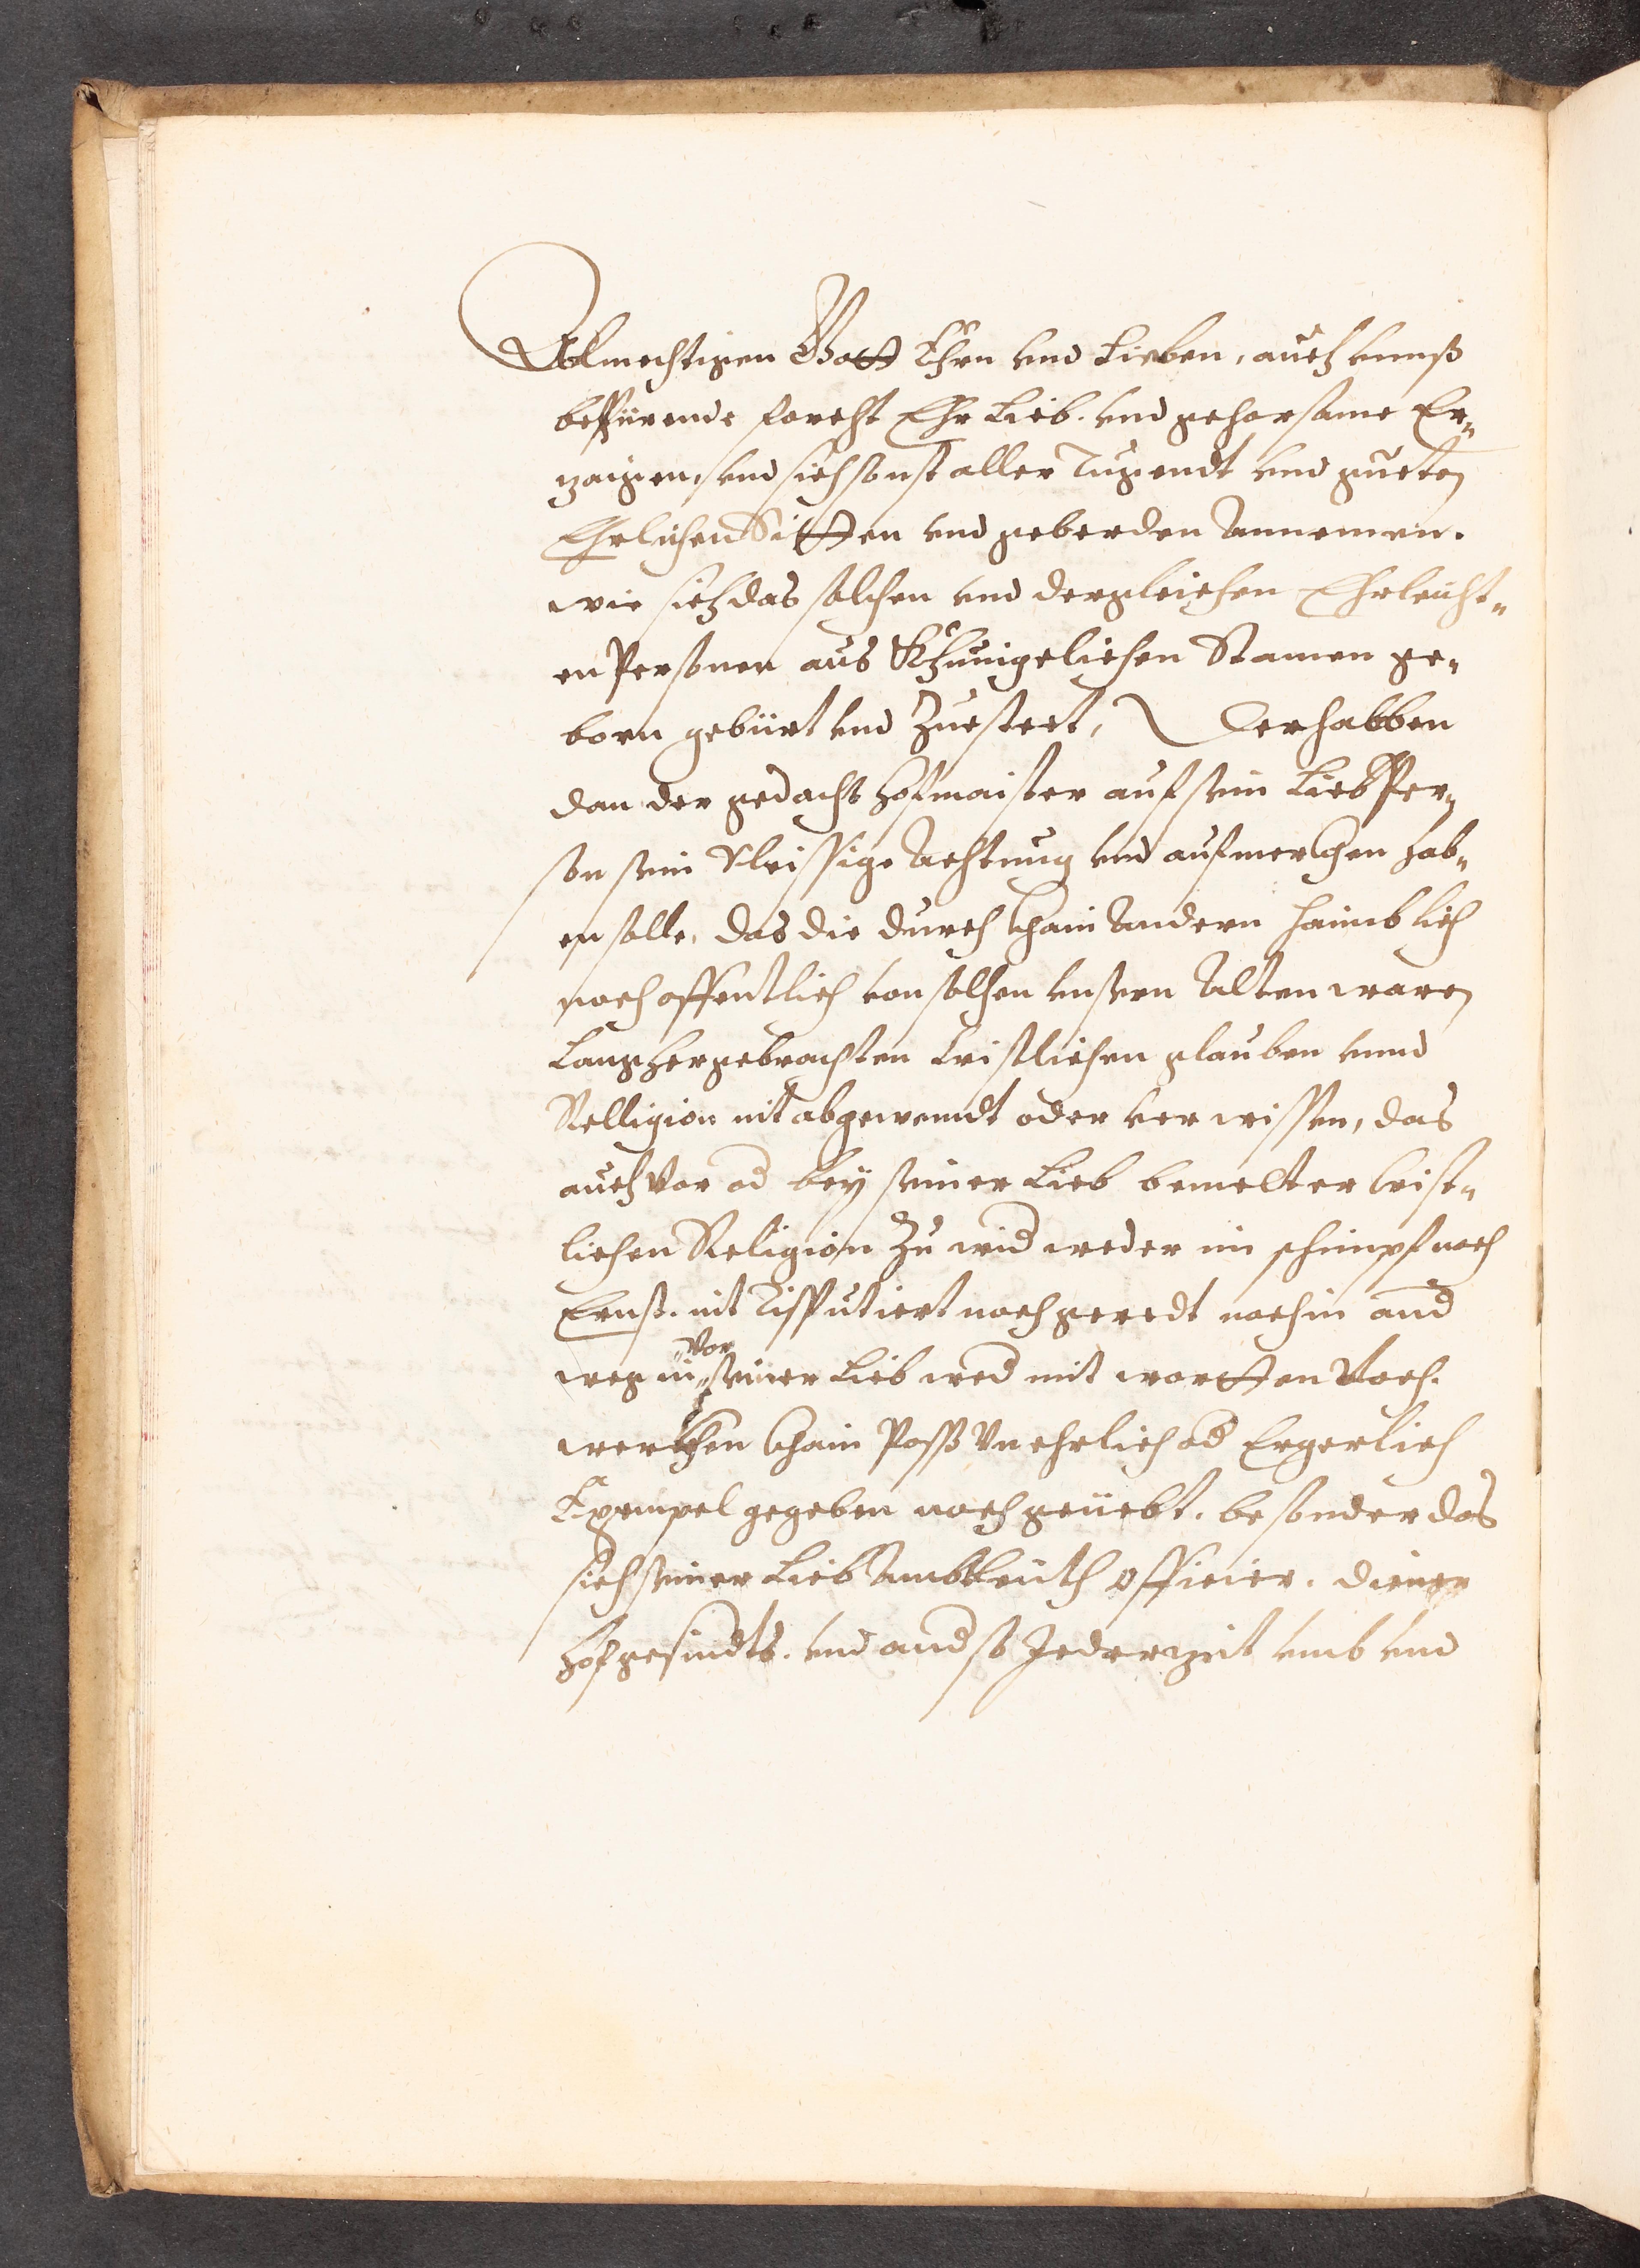 Allmechtigen Gott Ehrn vnd Lieben, auch vnnß
beshürende forcht Ehr Lieb. vnd gehorsame Er„
zaigen, vnd sich sonst aller Tugendt vnd gueten
Ehrlichen Sitten vnd geberden Annemen.
wie sich das solchen vnd dergleichen Ehrleicht„
en Personen aus Khünigelichen Stamen ge„
born gebürt vnd Zuesteet, Derhalben
dan der gedacht hofmaister auf sein Lieb Per„
son sein Vleissige Achtung vnd aufmerckhen hab„
en solle, das die durch khain Andern haimblich
noch offentlich von solhen vnsern Alten waren
Lang hergebrachten Cristlichen glauben vnnd
Relligion nit abgewendt oder verwissen, das
auch Vor od bey seiner Lieb bemelter Crist„
lichen Religion Zu wid weder in schimpf noch
Ernst. nit Disputiert noch geredt noch in and
weg in „vor„ seiner Lieb wed mit wortten Noch.
werckhen khain Poss Vnehrlich od Ergerlich
Exempel gegeben noch geüebt. besonder das
sich seiner Lieb Ambtleuth Officier. diener
hofgesindts. vnd and so Jederzeit vmb vnd